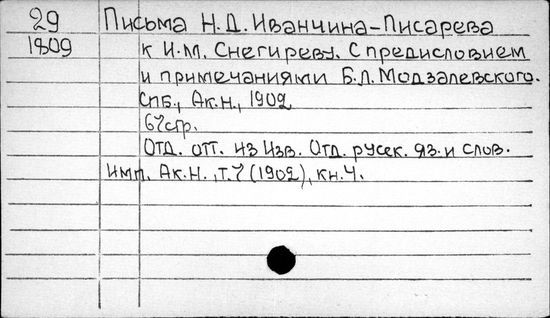 29 Письма Н.Д. Иванчина-Писарева
1809 к И.М. Снегиреву. С предисловием
и примечаниями Б.Л. Модзалевского.
Спб., Ак.Н., 1902
67стр.
Отд. отт. из Изв. Отд. русск. яз. и слов.
Имп. Ак.Н., т.7 (1902), кн.4.